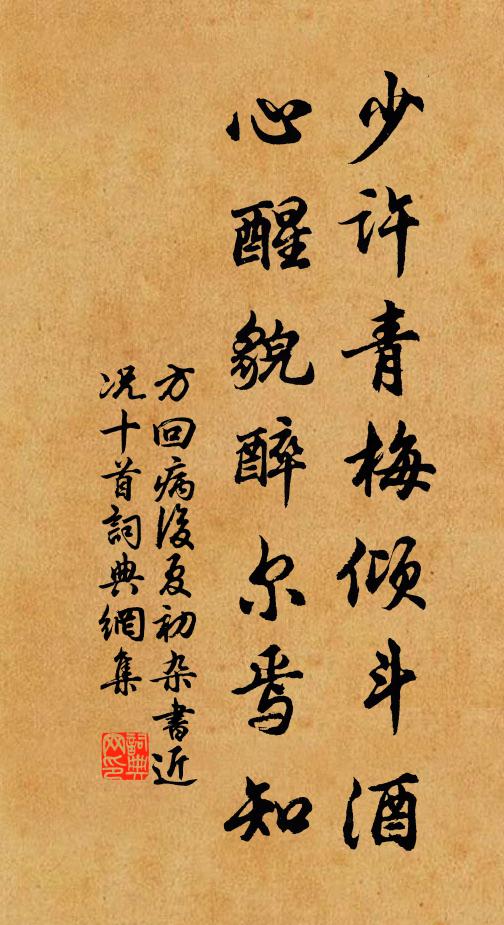 少许青梅倾斗酒
心醒貌醉尔焉知
方回病後夏初杂書近
况十首詞典網集
詞典网印